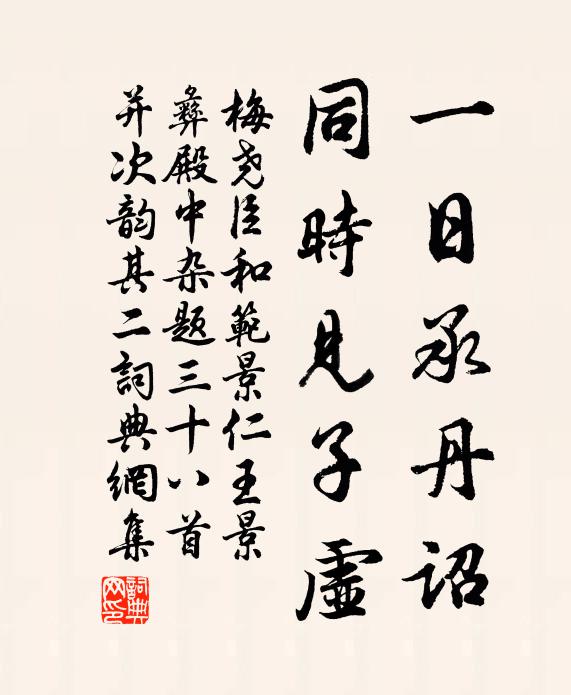 一日承丹詔
同時見子虛
梅尧臣和範景仁王景
彝殿中杂题三十八首
并次韵其二詞典網集
詞典網印